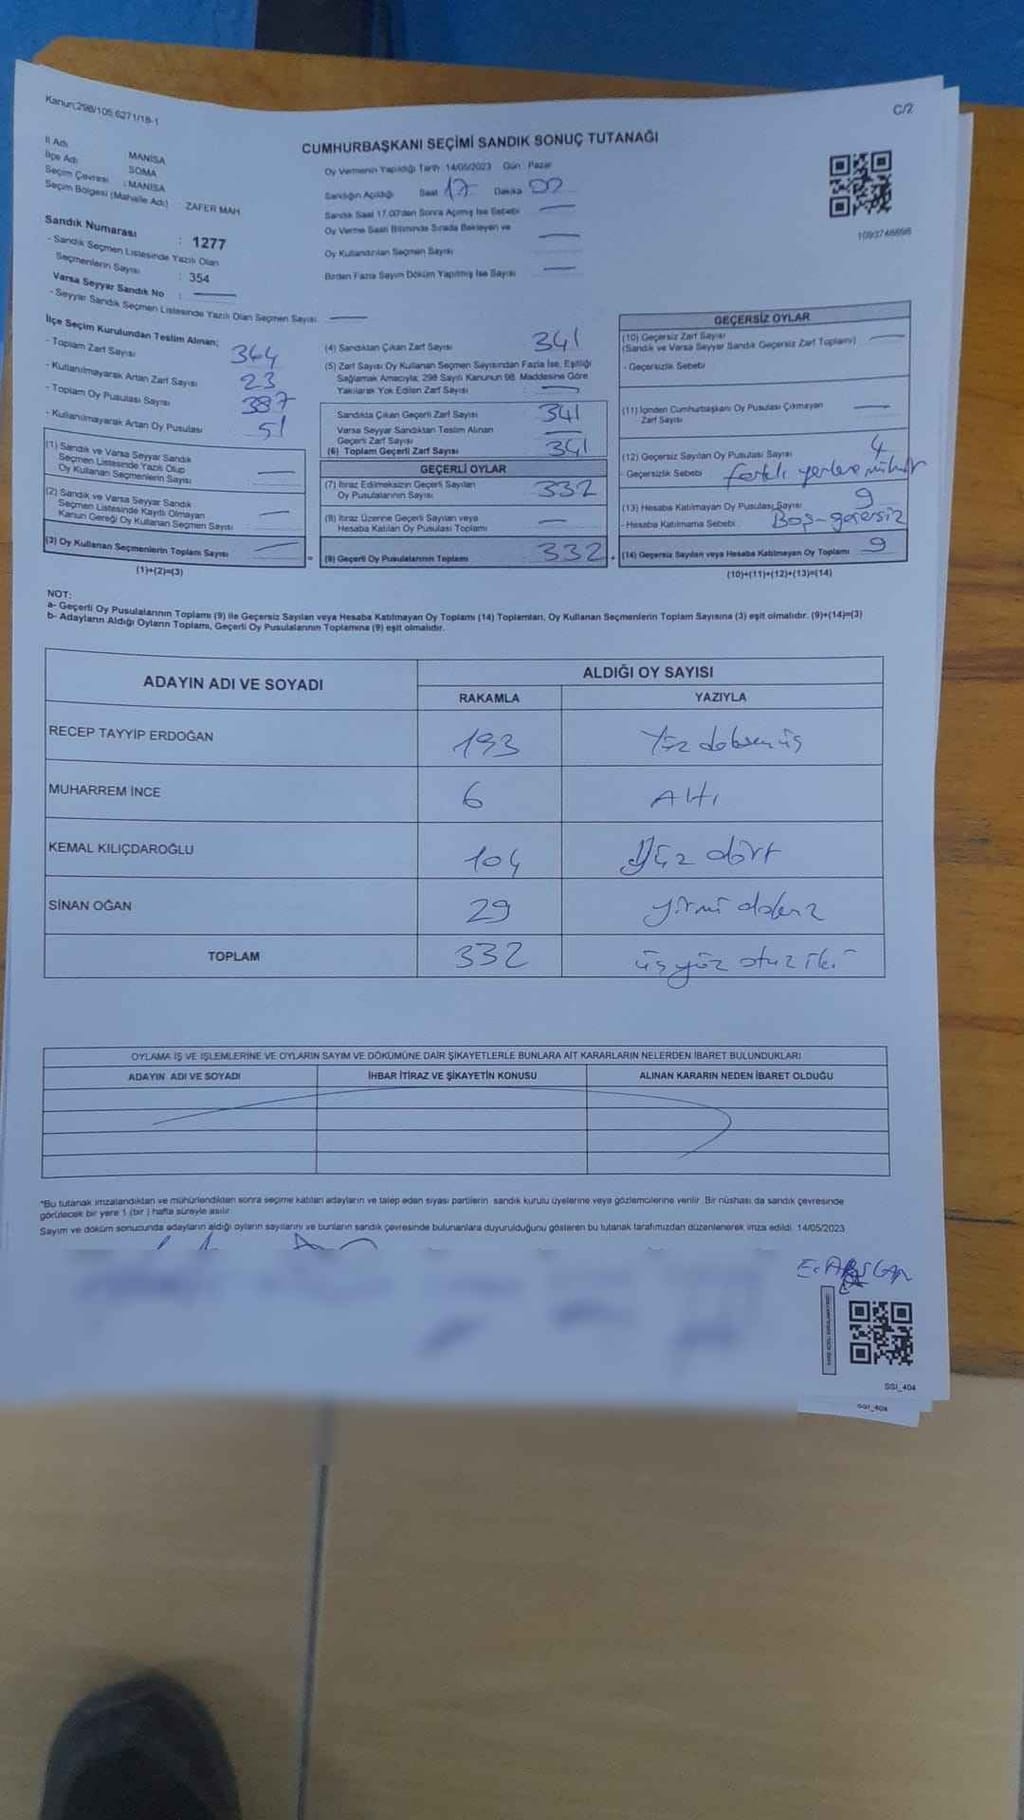 Kanun;298/105,6271/18-1
C/2
CUMHURBAŞKANI SEÇİMİ SANDIK SONUÇ TUTANAĞI
İl Adı MANİSA
İlçe Adı SOMA
Seçim Çevresi : MANİSA
Seçim Bölgesi (Mahalle Adı) : ZAFER MAH
Oy Vermenin Yapıldığı Tarih: 14/05/2023 Gün: Pazar
Sandığın Açıldığı Saat 17 Dakika 00
Sandık Saat 17.00'den Sonra Açılmış İse Sebebi
Oy Verme Saati Bitiminde Sırada Bekleyen ve
Oy Kullandırılan Seçmen Sayısı
Birden Fazla Sayım Döküm Yapılmış İse Sayısı
1093748898
Sandık Numarası : 1277
- Sandık Seçmen Listesinde Yazılı Olan
Seçmenlerin Sayısı : 354
Varsa Seyyar Sandık No :
- Seyyar Sandık Seçmen Listesinde Yazılı Olan Seçmen Sayısı
İlçe Seçim Kurulundan Teslim Alınan;
- Toplam Zarf Sayısı 364
- Kullanılmayarak Artan Zarf Sayısı 23
- Toplam Oy Pusulası Sayısı 387
- Kullanılmayarak Artan Oy Pusulası 51
(1) Sandık ve Varsa Seyyar Sandık
Seçmen Listesinde Yazılı Olup
Oy Kullanan Seçmenlerin Sayısı
(2) Sandık ve Varsa Seyyar Sandık
Seçmen Listesinde Kayıtlı Olmayan
Kanun Gereği Oy Kullanan Seçmen Sayısı
(3) Oy Kullanan Seçmenlerin Toplam Sayısı
(1)+(2)=(3)
(4) Sandıktan Çıkan Zarf Sayısı 341
(5) Zarf Sayısı Oy Kullanan Seçmen Sayısından Fazla İse, Eşitliği
Sağlamak Amacıyla; 298 Sayılı Kanunun 98. Maddesine Göre
Yakılarak Yok Edilen Zarf Sayısı :
Sandıkta Çıkan Geçerli Zarf Sayısı 341
Varsa Seyyar Sandıktan Teslim Alınan
Geçerli Zarf Sayısı
(6) Toplam Geçerli Zarf Sayısı 341
GEÇERLİ OYLAR
(7) İtiraz Edilmeksizin Geçerli Sayılan
Oy Pusulalarının Sayısı 332
(8) İtiraz Üzerine Geçerli Sayılan veya
Hesaba Katılan Oy Pusulası Toplamı
= (9) Geçerli Oy Pusulalarının Toplamı 332 +
GEÇERSİZ OYLAR
(10) Geçersiz Zarf Sayısı
(Sandık ve Varsa Seyyar Sandık Geçersiz Zarf Toplamı)
- Geçersizlik Sebebi
(11) İçinden Cumhurbaşkanı Oy Pusulası Çıkmayan
Zarf Sayısı
(12) Geçersiz Sayılan Oy Pusulası Sayısı 4
- Geçersizlik Sebebi farklı yerlere mühür
(13) Hesaba Katılmayan Oy Pusulası Sayısı 9
- Hesaba Katılmama Sebebi Boş-geçersiz
(14) Geçersiz Sayılan veya Hesaba Katılmayan Oy Toplamı 9
(10)+(11)+(12)+(13)=(14)
NOT:
a- Geçerli Oy Pusulalarının Toplamı (9) ile Geçersiz Sayılan veya Hesaba Katılmayan Oy Toplamı (14) Toplamları, Oy Kullanan Seçmenlerin Toplam Sayısına (3) eşit olmalıdır. (9)+(14)=(3)
b- Adayların Aldığı Oyların Toplamı, Geçerli Oy Pusulalarının Toplamına (9) eşit olmalıdır.
ADAYIN ADI VE SOYADI ALDIĞI OY SAYISI
RAKAMLA YAZIYLA
RECEP TAYYİP ERDOĞAN 193 Yüz doksan üç
MUHARREM İNCE 6 Altı
KEMAL KILIÇDAROĞLU 104 Yüz dört
SİNAN OĞAN 29 yirmi dokuz
TOPLAM 332 üç yüz otuz iki
OYLAMA İŞ VE İŞLEMLERİNE VE OYLARIN SAYIM VE DÖKÜMÜNE DAİR ŞİKAYETLERLE BUNLARA AİT KARARLARIN NELERDEN İBARET BULUNDUKLARI
ADAYIN ADI VE SOYADI İHBAR İTİRAZ VE ŞİKAYETİN KONUSU ALINAN KARARIN NEDEN İBARET OLDUĞU
*Bu tutanak imzalandıktan ve mühürlendikten sonra seçime katılan adayların ve talep eden siyasi partilerin sandık kurulu üyelerine veya gözlemcilerine verilir. Bir nüshası da sandık çevresinde
görülecek bir yere 1 (bir ) hafta süreyle asılır.
Sayım ve döküm sonucunda adayların aldığı oyların sayılarını ve bunların sandık çevresinde bulunanlara duyurulduğunu gösteren bu tutanak tarafımızdan düzenlenerek imza edildi. 14/05/2023
SGI_404
SGI_404